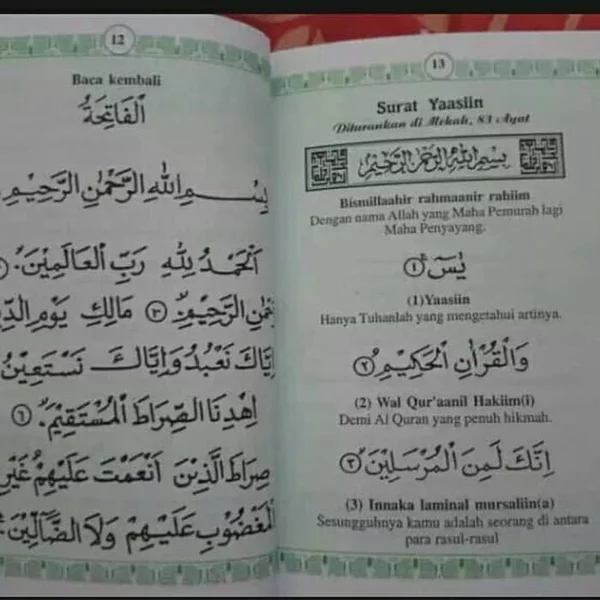 12
Baca kembali
اَلْفَاتِحَةُ
بِسْمِ اللهِ الرَّحْمٰنِ الرَّحِيْمِ
اَلْحَمْدُ لِلّٰهِ رَبِّ الْعَالَمِيْنَ ۙ
الرَّحِيْمِ ۙ ٣ مَالِكِ يَوْمِ
اِيَّاكَ نَعْبُدُ وَاِيَّاكَ نَسْتَعِيْنُ
اِهْدِنَا الصِّرَاطَ الْمُسْتَقِيْمَ ۙ ٦
صِرَاطَ الَّذِيْنَ اَنْعَمْتَ عَلَيْهِمْ غَيْرِ
الْمَغْضُوْبِ عَلَيْهِمْ وَلَا الضَّالِّيْنَ
13
Surat Yaasiin
Diturunkan di Mekah, 83 Ayat
بِسْمِ اللهِ الرَّحْمٰنِ الرَّحِيْمِ
Bismillaahir rahmaanir rahiim
Dengan nama Allah yang Maha Pemurah lagi
Maha Penyayang.
يٰسٓ ۚ ١
(1)Yaasiin
Hanya Tuhanlah yang mengetahui artinya.
وَالْقُرْاٰنِ الْحَكِيْمِ ۙ ٢
(2) Wal Qur'aanil Hakiim(i)
Demi Al Quran yang penuh hikmah.
اِنَّكَ لَمِنَ الْمُرْسَلِيْنَ ۙ ٣
(3) Innaka laminal mursaliin(a)
Sesungguhnya kamu adalah seorang di antara
para rasul-rasul